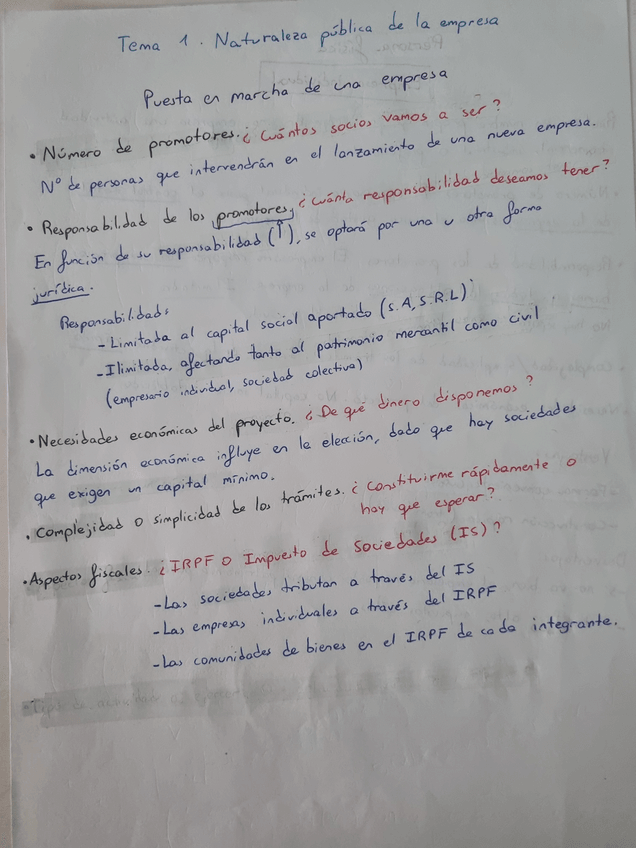 Tema 1. Naturaleza pública de la empresa
Puesta en marcha de una empresa
• Número de promotores. ¿Cuántos socios vamos a ser?
Nº de personas que intervendrán en el lanzamiento de una nueva empresa.
• Responsabilidad de los promotores, ¿cuánta responsabilidad deseamos tener?
En función de su responsabilidad (↑), se optará por una u otra forma
jurídica.
Responsabilidad:
- Limitada al capital social aportado (S.A, S.R.L)
- Ilimitada, afectando tanto al patrimonio mercantil como civil
(empresario individual, sociedad colectiva)
• Necesidades económicas del proyecto. ¿De qué dinero disponemos?
La dimensión económica influye en la elección, dado que hay sociedades
que exigen un capital mínimo.
• Complejidad o simplicidad de los trámites. ¿Constituirme rápidamente o
hay que esperar?
• Aspectos fiscales. ¿IRPF o Impuesto de Sociedades (IS)?
- Las sociedades tributan a través del IS
- Las empresas individuales a través del IRPF
- Las comunidades de bienes en el IRPF de cada integrante.